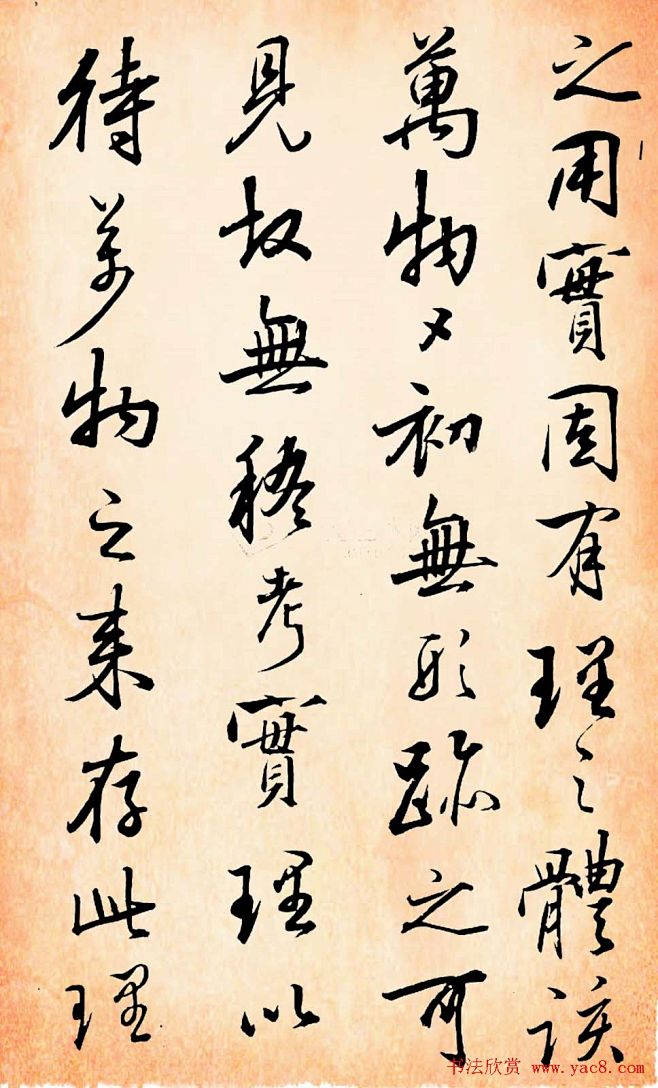 之用實固有理之體該
萬物々初無形跡之可
見故無稽考實理以
待萬物之来存此理
书法欣赏 www.yac8.com